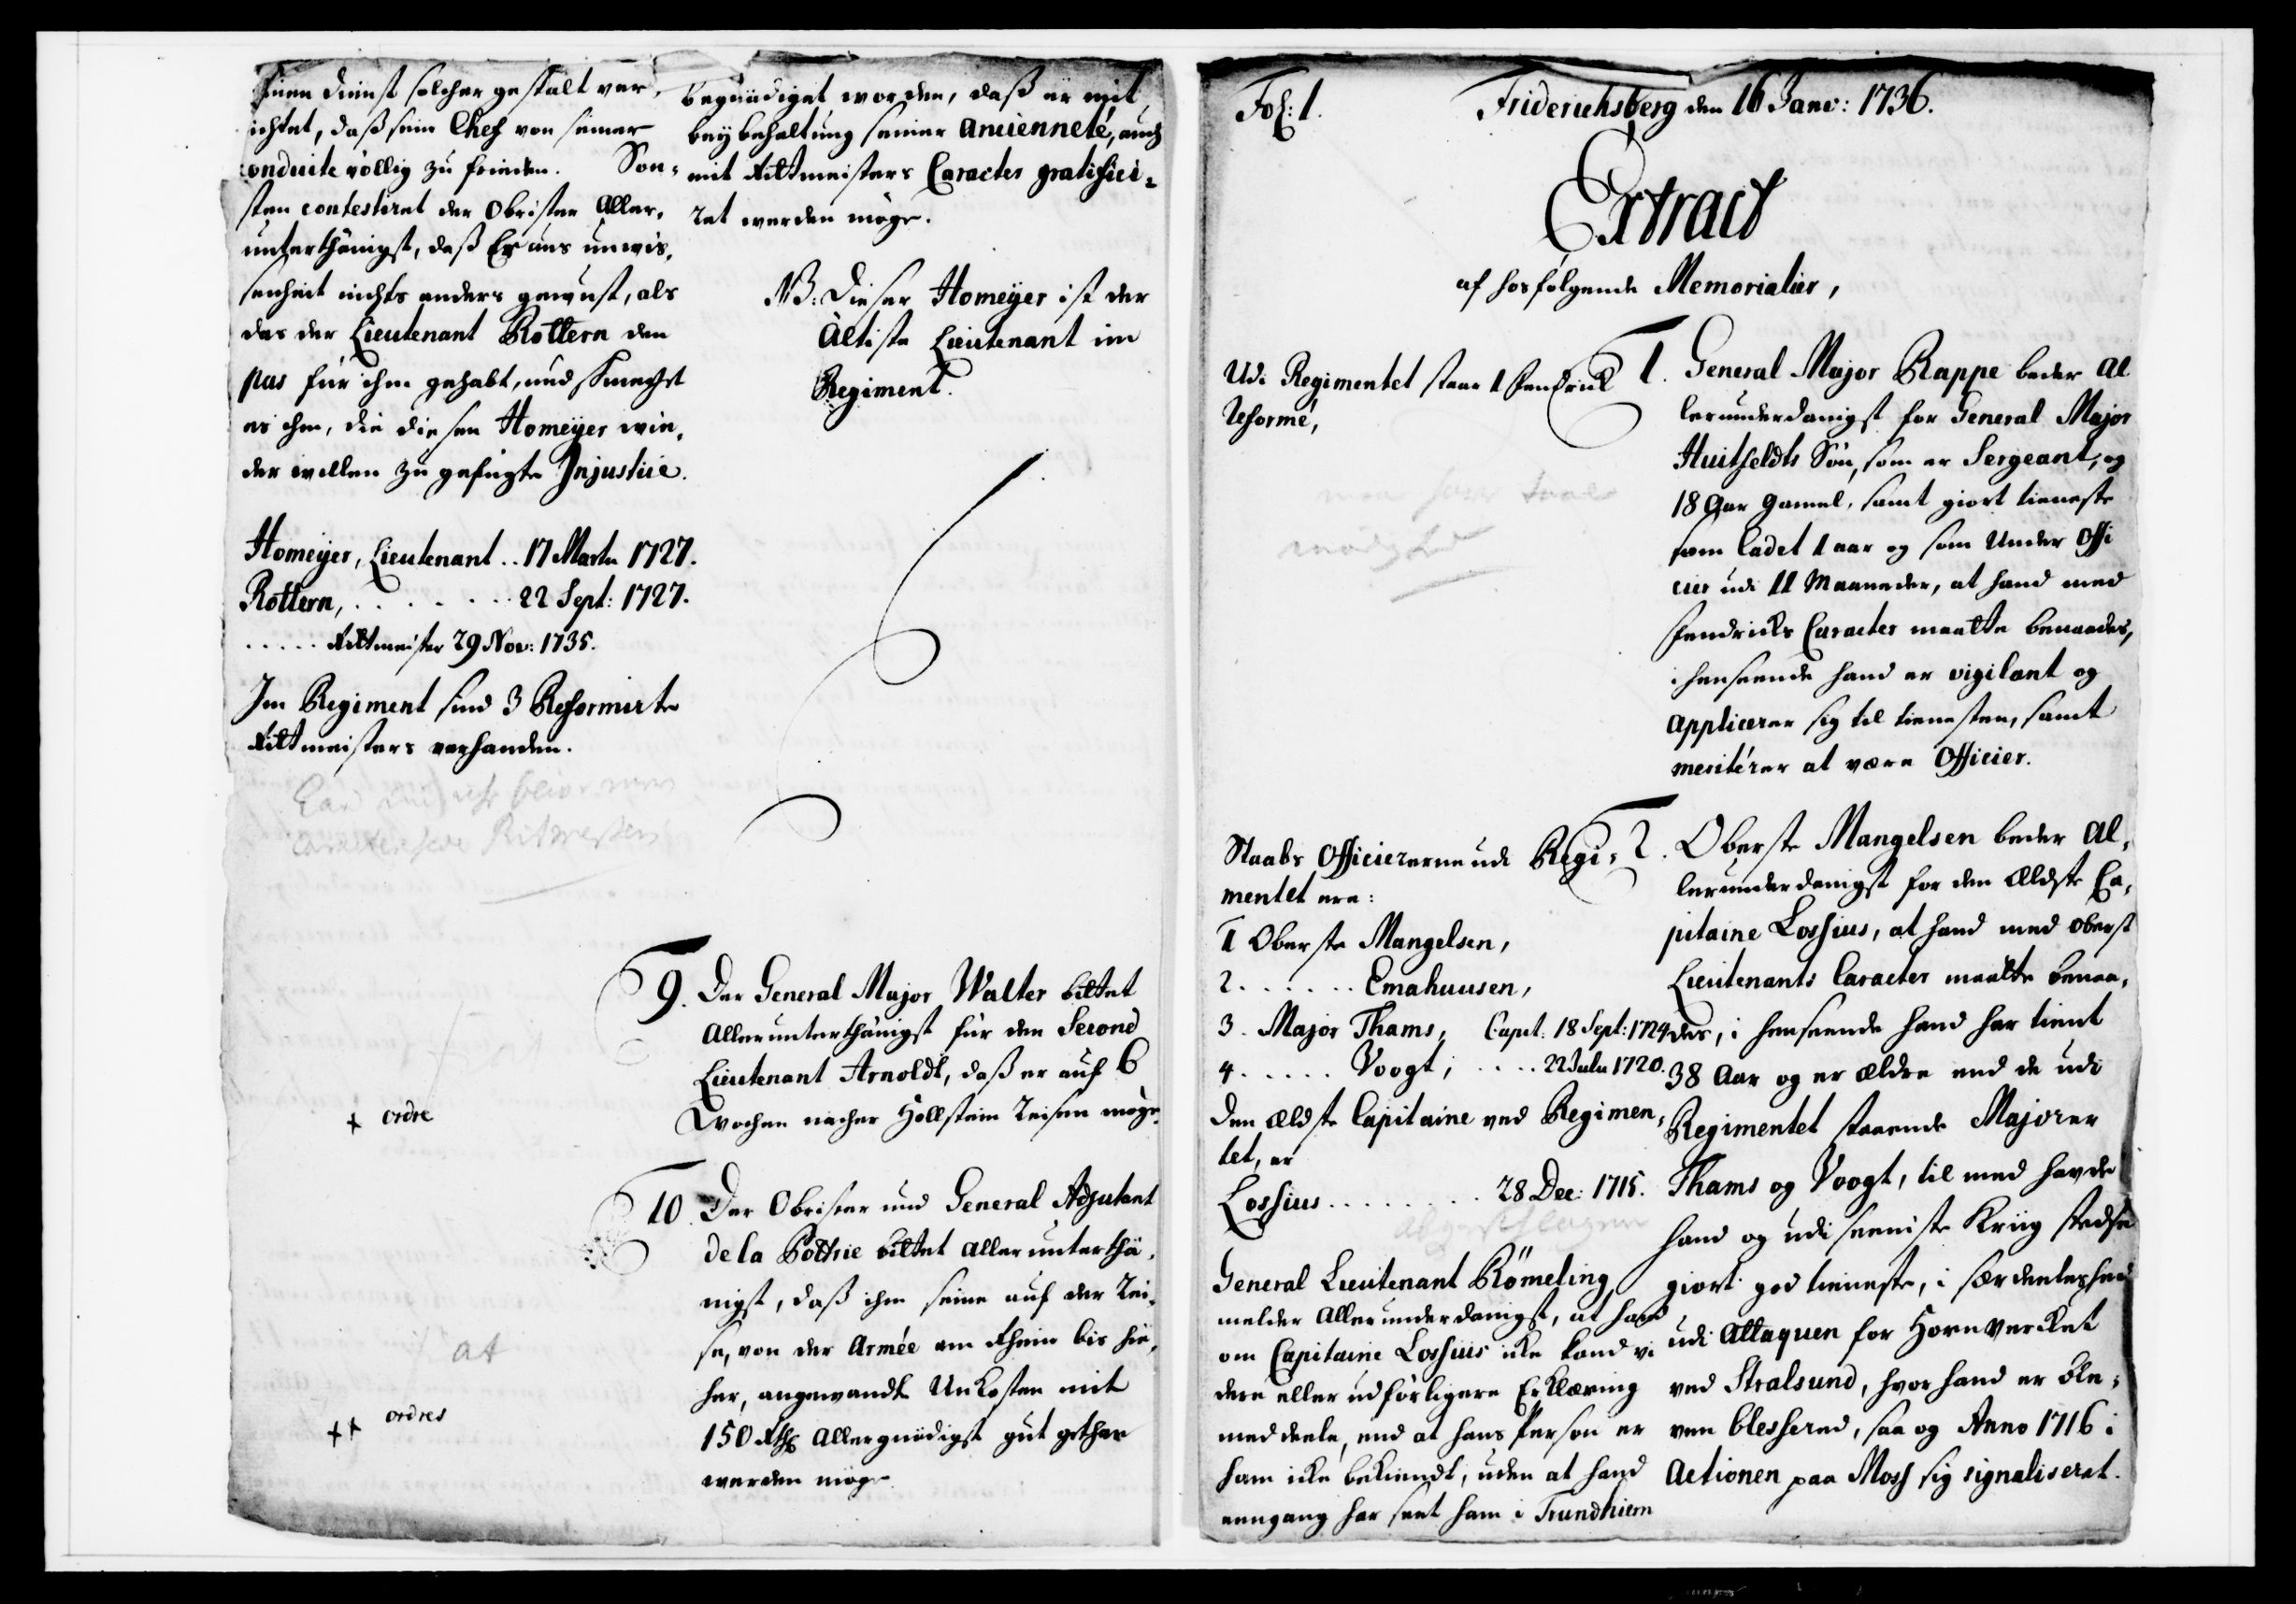 seinen Dienst solcher gestalt ver-
richtet, daß sein Chef von seiner
conduite völlig zu frieden. Son-
sten contestiret der Obrister Aller-
unterthänigst, daß Er aus unwis-
senheit nichts anders gewust, als
das der Lieutenant Rottern den
pas für ihm gehabt, und schmertzet
es ihm, die diesen Homeÿer wie-
der willen zu gefügte Injustice.
Homeÿer, Lieutenant .. 17 Martii 1727.
Rottern, . . . . . . . 22 Sept: 1727.
. . . . . Rittmeister 29 Nov: 1735.
Im Regiment sind 3 Reformirte
Rittmeisters verhanden.
Ritmester
+ ordre
at
++ ordres
begnädiget worden, daß er mit
beÿbehaltung seiner Ancienneté, auch
mit Rittmeisters Caracter gratifici-
ret werden möge.
NB: Dieser Homeÿer ist der
Ältiste Lieutenant im
Regiment.
9. Der General Major Walter bittet
Allerunterthänigst für den Second
Lieutenant Arnoldt, daß er auf 6
Wochen nacher Hollstein reisen möge.
10. Der Obrister und General Adjutant
de la Pottrie bittet Allerunterthä-
nigst, daß ihm seine auf der Rei-
se, von der Armée am Rhein bis hie-
her, angewandte Unkosten mit
150 Rthr Allergnädigst gut gethan
werden möge.
Fol: 1. Friderichsberg den 16 Janv: 1736.
Extract
af hosfølgende Memorialier,
Udi Regimentet staar 1 Fendrick
Reformé,
1. General Major Rappe beder Al
lerunderdanigst for General Major
Huitfeldts Søn, som er Sergeant, og
18 Aar gamel, samt giort tieneste
som Cadet 1 aar og som Under Offi
cier udi 11 Maaneder, at hand med
Fendricks Caracter maatte benaades,
i henseende hand er vigilant og
Applicerer sig til tienesten, samt
meritérer at være Officier.
Staabs Officiererne udi Regi-
mentet ere:
1 Oberste Mangelsen,
2 . . . . . . Emahuusen,
3. Major Thams, Capit: 18 Sept: 1724
4 . . . . . Voogt, . . . . 22 Julii 1720.
Den ældste Capitaine ved Regimen-
tet, er
Lossius . . . . . . . . . 28 Dec: 1715.
General Lieutenant Römeling
melder Allerunderdanigst, at hand
om Capitaine Lossius icke kand vi
dere eller udførligere Erklæring
meddeele, end at hans Person er
ham icke bekiendt, uden at hand
eengang har seet ham i Trundhiem
2. Oberste Mangelsen beder Al-
lerunderdanigst for den Ældste Ca-
pitaine Lossius, at hand med Oberst
Lieutenants Caracter maatte benaa-
des, i henseende hand har tient
38 Aar og er ældre end de udi
Regimentet staaende Majorer
Thams og Voogt, til med havde
hand og udi seeniste Kriig stedse
giort god tieneste, i særdeeleshed
udi Attaquen for Hornvercket
ved Stralsund, hvor hand er ble-
ven blessered, saa og Anno 1716 i
Actionen paa Moss sig signaliseret.